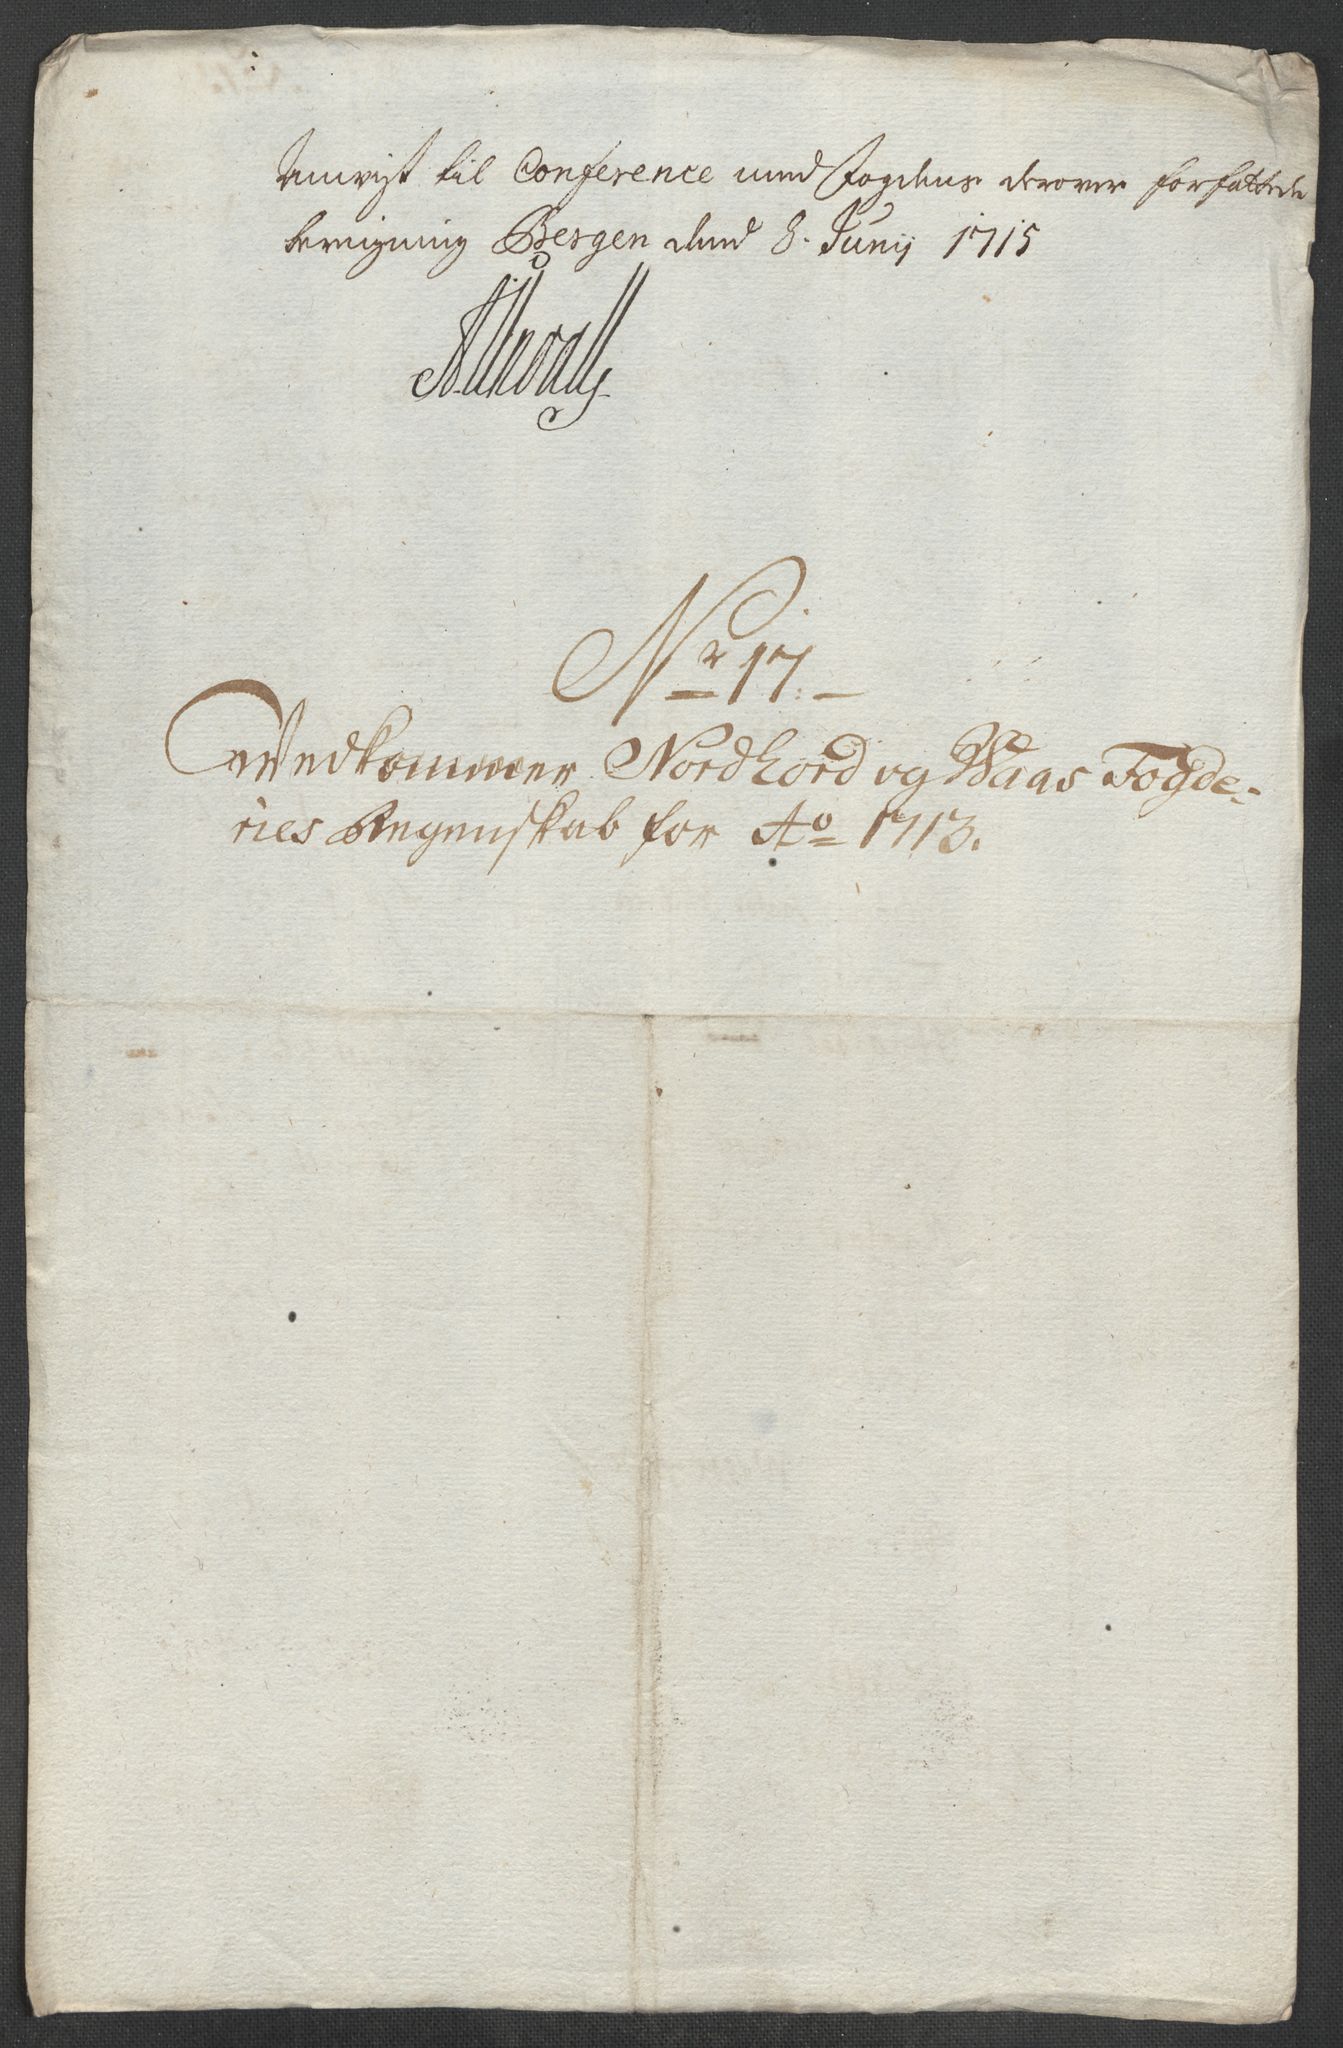 Anvist til Conference med Fogdens derover forfattede
beregning Bergen dend 8. Junij 1715
Nr 17.
Vedkommer Nordhord og Waas Fogde-
ries Regenskab for Ao 1713.